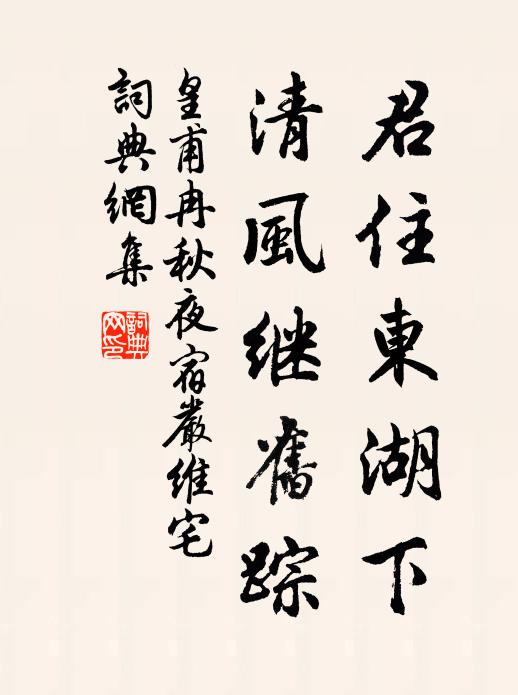 君住東湖下
清風继舊踪
皇甫冉秋夜宿嚴維宅
詞典網集
詞典网印